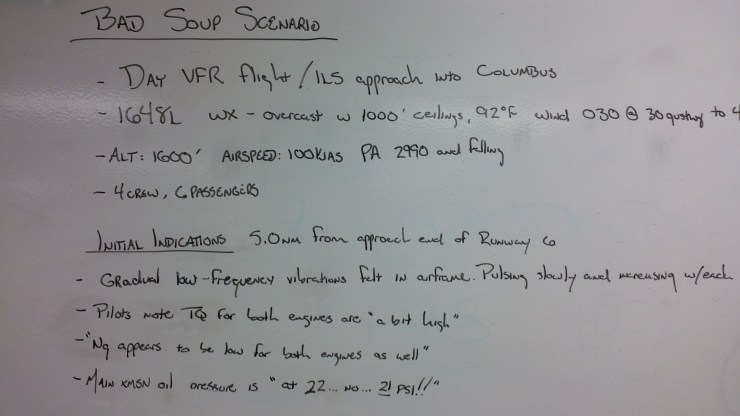 BAD SOUP SCENARIO
- DAY VFR flight / ILS approach into COLUMBUS
- 1648L WX - overcast w 1000' ceilings, 92°F wind 030 @ 30 gusting to 4
- ALT: 1600' AIRSPEED: 100KIAS PA 2990 and falling
- 4 CREW, 6 PASSENGERS
INITIAL INDICATIONS 5.0NM from approach end of Runway 6
- GRadual low-frequency vibrations felt in airframe. Pulsing slowly and increasing w/each
- Pilots note TQ for both engines are "a bit high"
- "Ng appears to be low for both engines as well"
- MAIN XMSN oil pressure is "at 22... no... 21 PSI!!"